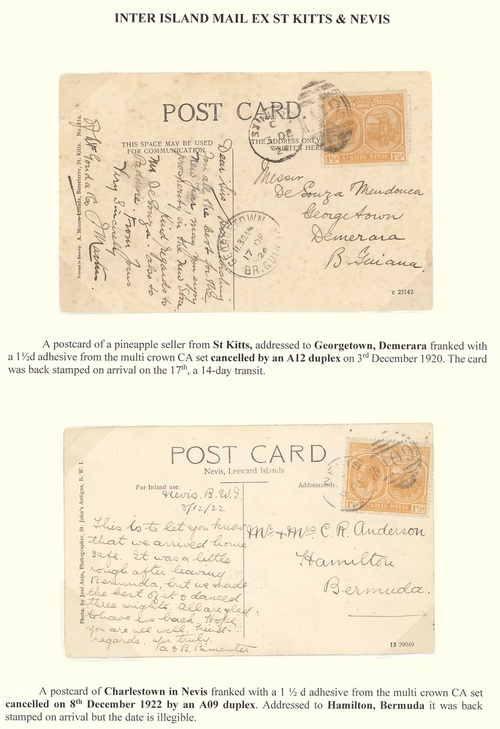 INTER ISLAND MAIL EX ST KITTS & NEVIS
POST CARD.
THIS SPACE MAY BE USED
FOR COMMUNICATION.
THE ADDRESS ONLY
WRITTEN HERE
ST KITTS-NEVIS
1½d
Messrs
De Souza Mendonca
Georgetown
Demerara
B. Guiana.
Dear Sirs
you all the best for the
New Year, may you enjoy
prosperity in the New Store.
kind regards to
Mr De Souza.
From Yours
Very Sincerely
J Martin.
17 DE
20
BR. GUIANA
c 23142
A postcard of a pineapple seller from St Kitts, addressed to Georgetown, Demerara franked with
a 1½d adhesive from the multi crown CA set cancelled by an A12 duplex on 3rd December 1920. The card
was back stamped on arrival on the 17th, a 14-day transit.
POST CARD
Nevis, Leeward Islands
For Inland use.
Address only
Nevis. B.W.I
8/12/22
This is to let you know
that we arrived home
safe. It was a little
rough after leaving
Bermuda, but we made
the best of it & danced
three nights. All are glad
to have us back. Hope
you are all well. Kind
regards. yrs truly
A & B. Parmenter
Mr & Mrs C. R. Anderson
Hamilton
Bermuda.
ST KITTS-NEVIS
1½d
Photo. by José Anjo, Photographer, St. John's Antigua, B. W. I.
13 29049
A postcard of Charlestown in Nevis franked with a 1 ½ d adhesive from the multi crown CA set
cancelled on 8th December 1922 by an A09 duplex. Addressed to Hamilton, Bermuda it was back
stamped on arrival but the date is illegible.